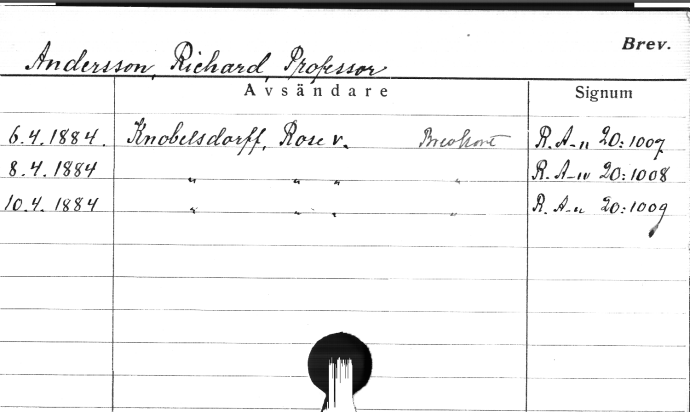 Brev.
Andersson, Richard, Professor
Avsändare Signum
6.4.1884. Knobelsdorff, Rose v. Brevkort R.A-n 20:1007
8.4.1884 „ „ „ „ R.A-n 20:1008
10.4.1884 „ „ „ „ R.A-n 20:1009